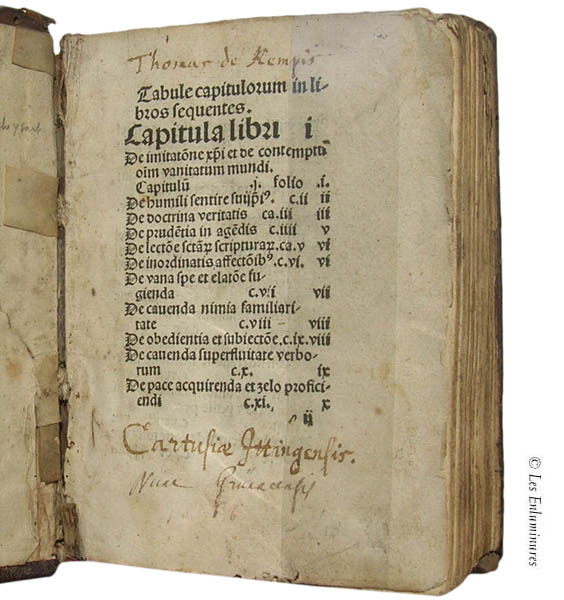 Thomas de Kempis
Tabule capitulorum in li-
bros sequentes.
Capitula libri i
De imitatõne xp̃i et de contemptu
oim̃ vanitatum mundi.
Capitulũ .j. folio .i.
De humili sentire suijp̃iꝰ. c.ii ii
De doctrina veritatis ca.iii iii
De prudẽtia in agẽdis c.iiii v
De lectõe sctãꝝ scripturaꝝ. ca.v vi
De inordinatis affectõibꝰ. c.vi. vi
De vana spe et elatõe fu-
gienda c.vii vii
De cauenda nimia familiari-
tate c.viii viii
De obedientia et subiectõe. c.ix. viii
De cauenda superfluitate verbo-
rum c.x. ix
De pace acquirenda et zelo profici-
endi c.xi. x
ij
Cartusiæ Ittingensis.
Nunc
© Les Enluminures